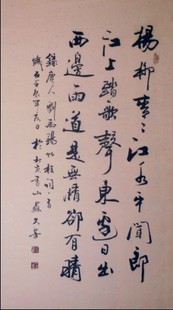 楊柳青々江水平聞郎
江上踏歌聲東邊日出
西邊雨道是無情卻有晴
錄唐人劉禹錫竹枝詞一首